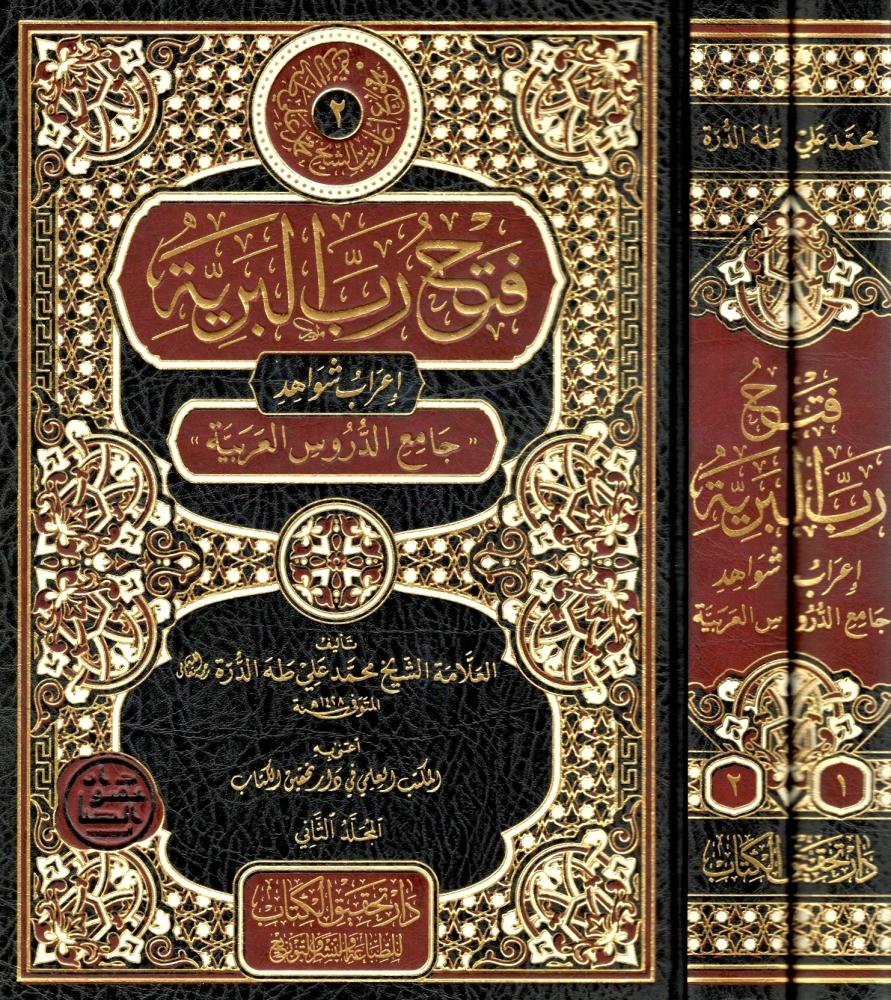 ٢
فَتْحُ رَبِّ البَرِيَّةِ
إعْرَابُ شَوَاهِدِ
«جَامِعِ الدُّرُوسِ العَرَبيَّةِ»
تَأليفُ
العَلَّامَة الشَّيْخ محمَّد عَليّ طَهَ الدُّرَة
المتوفى سنة ١٤٢٨هـ
اعتنى به
المكتب العلمي في دار تحقيق الكتاب
المُجَلَّدُ الثَّانِي
دَار تحقيق الكِتَاب
للطباعة والنشر والتوزيع
محمَّد عَليّ طَه الدُّرَة
فَتْحُ
رَبِّ البَرِيَّةِ
إعْرَابُ شَوَاهِدِ
جَامِع الدُّرُوس العَرَبيَّة
١ ٢
دَار تحقيق الكِتَاب